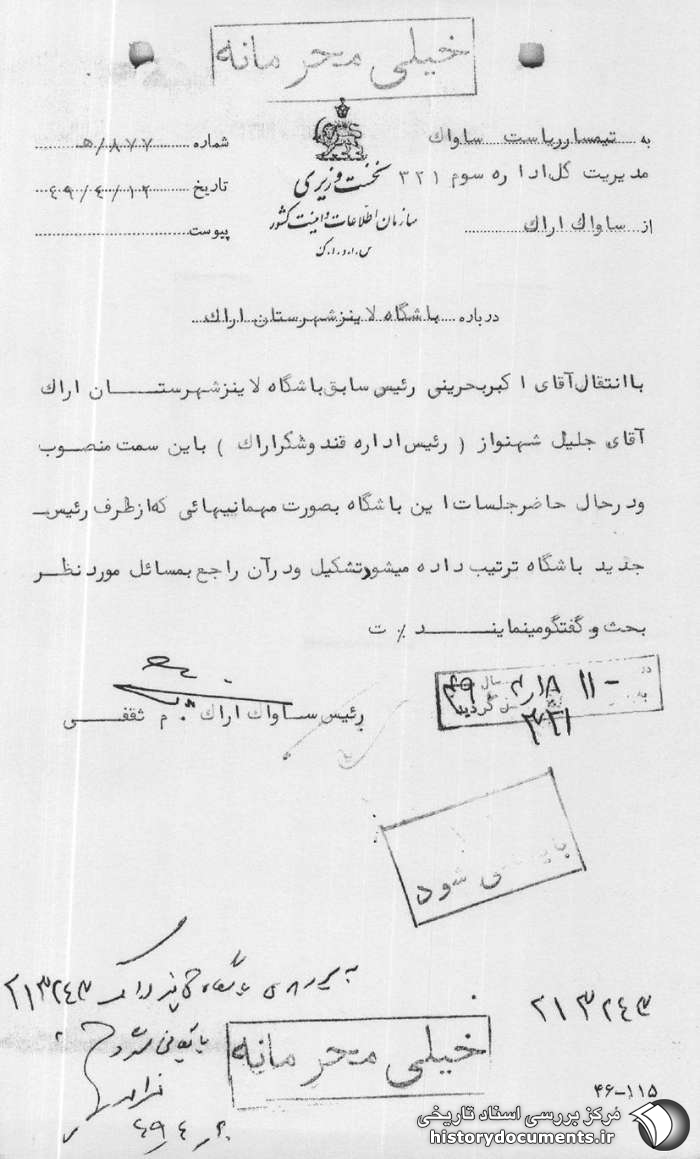 خیلی محرمانه
به تیمسار ریاست ساواک
مدیریت کل اداره سوم ۳۲۱
از ساواک اراک
نخست وزیری
سازمان اطلاعات و امنیت کشور
س.ا.و.ا.ک
شماره ۸۷۷/هـ
تاریخ ۴۹/۴/۱۲
پیوست
درباره باشگاه لاینز شهرستان اراک
با انتقال آقای اکبر بحرینی رئیس سابق باشگاه لاینز شهرستان اراک
آقای جلیل شهنواز ( رئیس اداره قند و شکر اراک ) باین سمت منصوب
ودرحال حاضر جلسات این باشگاه بصورت مهمانیهائی که از طرف رئیس
جدید باشگاه ترتیب داده میشود تشکیل ودرآن راجع بمسائل مورد نظر
بحث و گفتگو مینمایند ٪ ت
رئیس ساواک اراک . م ثقفی
در ۱۱-
سال ۴۹
گردید
۳۲۱
شود
۲۱۳۲۴۳
بایگانی شود
۴۹
خیلی محرمانه
۲۱۳۲۴۳
۴۶-۱۱۵
مرکز بررسی اسناد تاریخی
historydocuments.ir